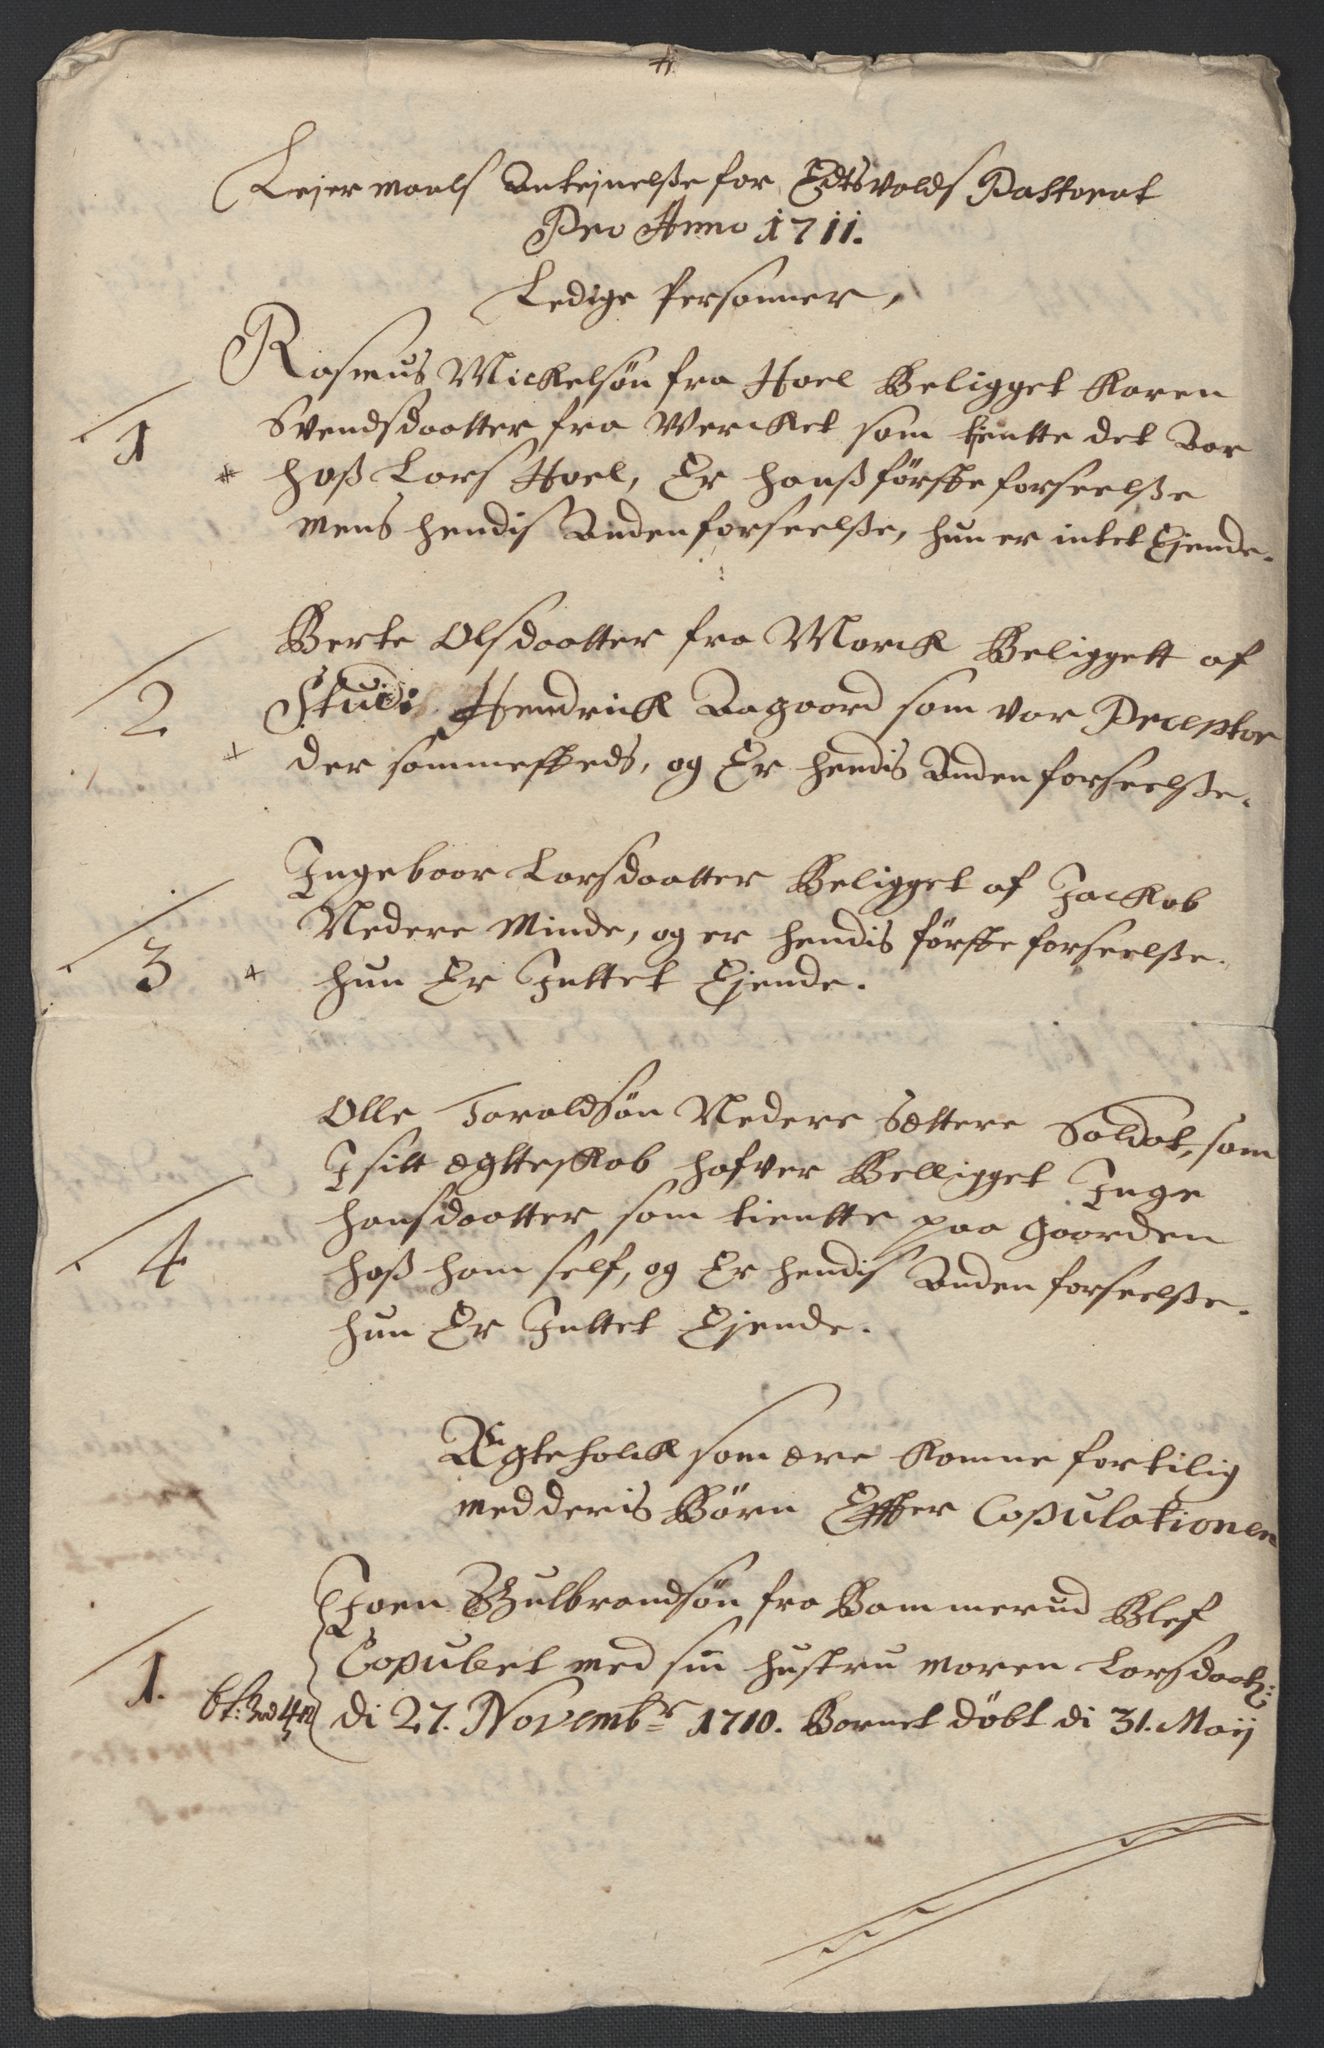 Lejermaals Antejnelsse for Edtsvolds Pastorat
Pro Anno 1711.
Ledige Personner,
Rasmus Mickelsøn fra Hoel Beligget Karen
1 Svendsdaatter fra Wercket som tientte det Aar
hoss Lars Hoel, Er hanss første forseelsse
mens hendis Anden forseelsse, hun er intet Ejende.
Berte Olsdaatter fra Morck Beliggett af
2 Stud: Hendrick Aagaard som var Preceptor
der sammesteds, og Er hendis Anden forseelsse.
Ingeboor Larsdaatter Beligget af Jackob
3 Nedere Minde, og er hendis første forseelsse.
hun Er Inttet Ejende.
Olle Taraldsøn Nedere Sættere Soldat, som
I sitt ægtteskab hafver Belligget Inge
4 hansdaatter som tientte paa Gaarden
hoss ham self, og Er hendis Anden forseelsse.
hun Er Inttet Ejende.
Ægtefolck som ære Komne fortilig
med deris Børn Efter Copulationen
Joen Gulbrandsøn fra Bammerud Blef
1. Copulert med sin hustru Maren Larsdaat:
di 27. Novembr 1710. Barnet døbt di 31. Maij